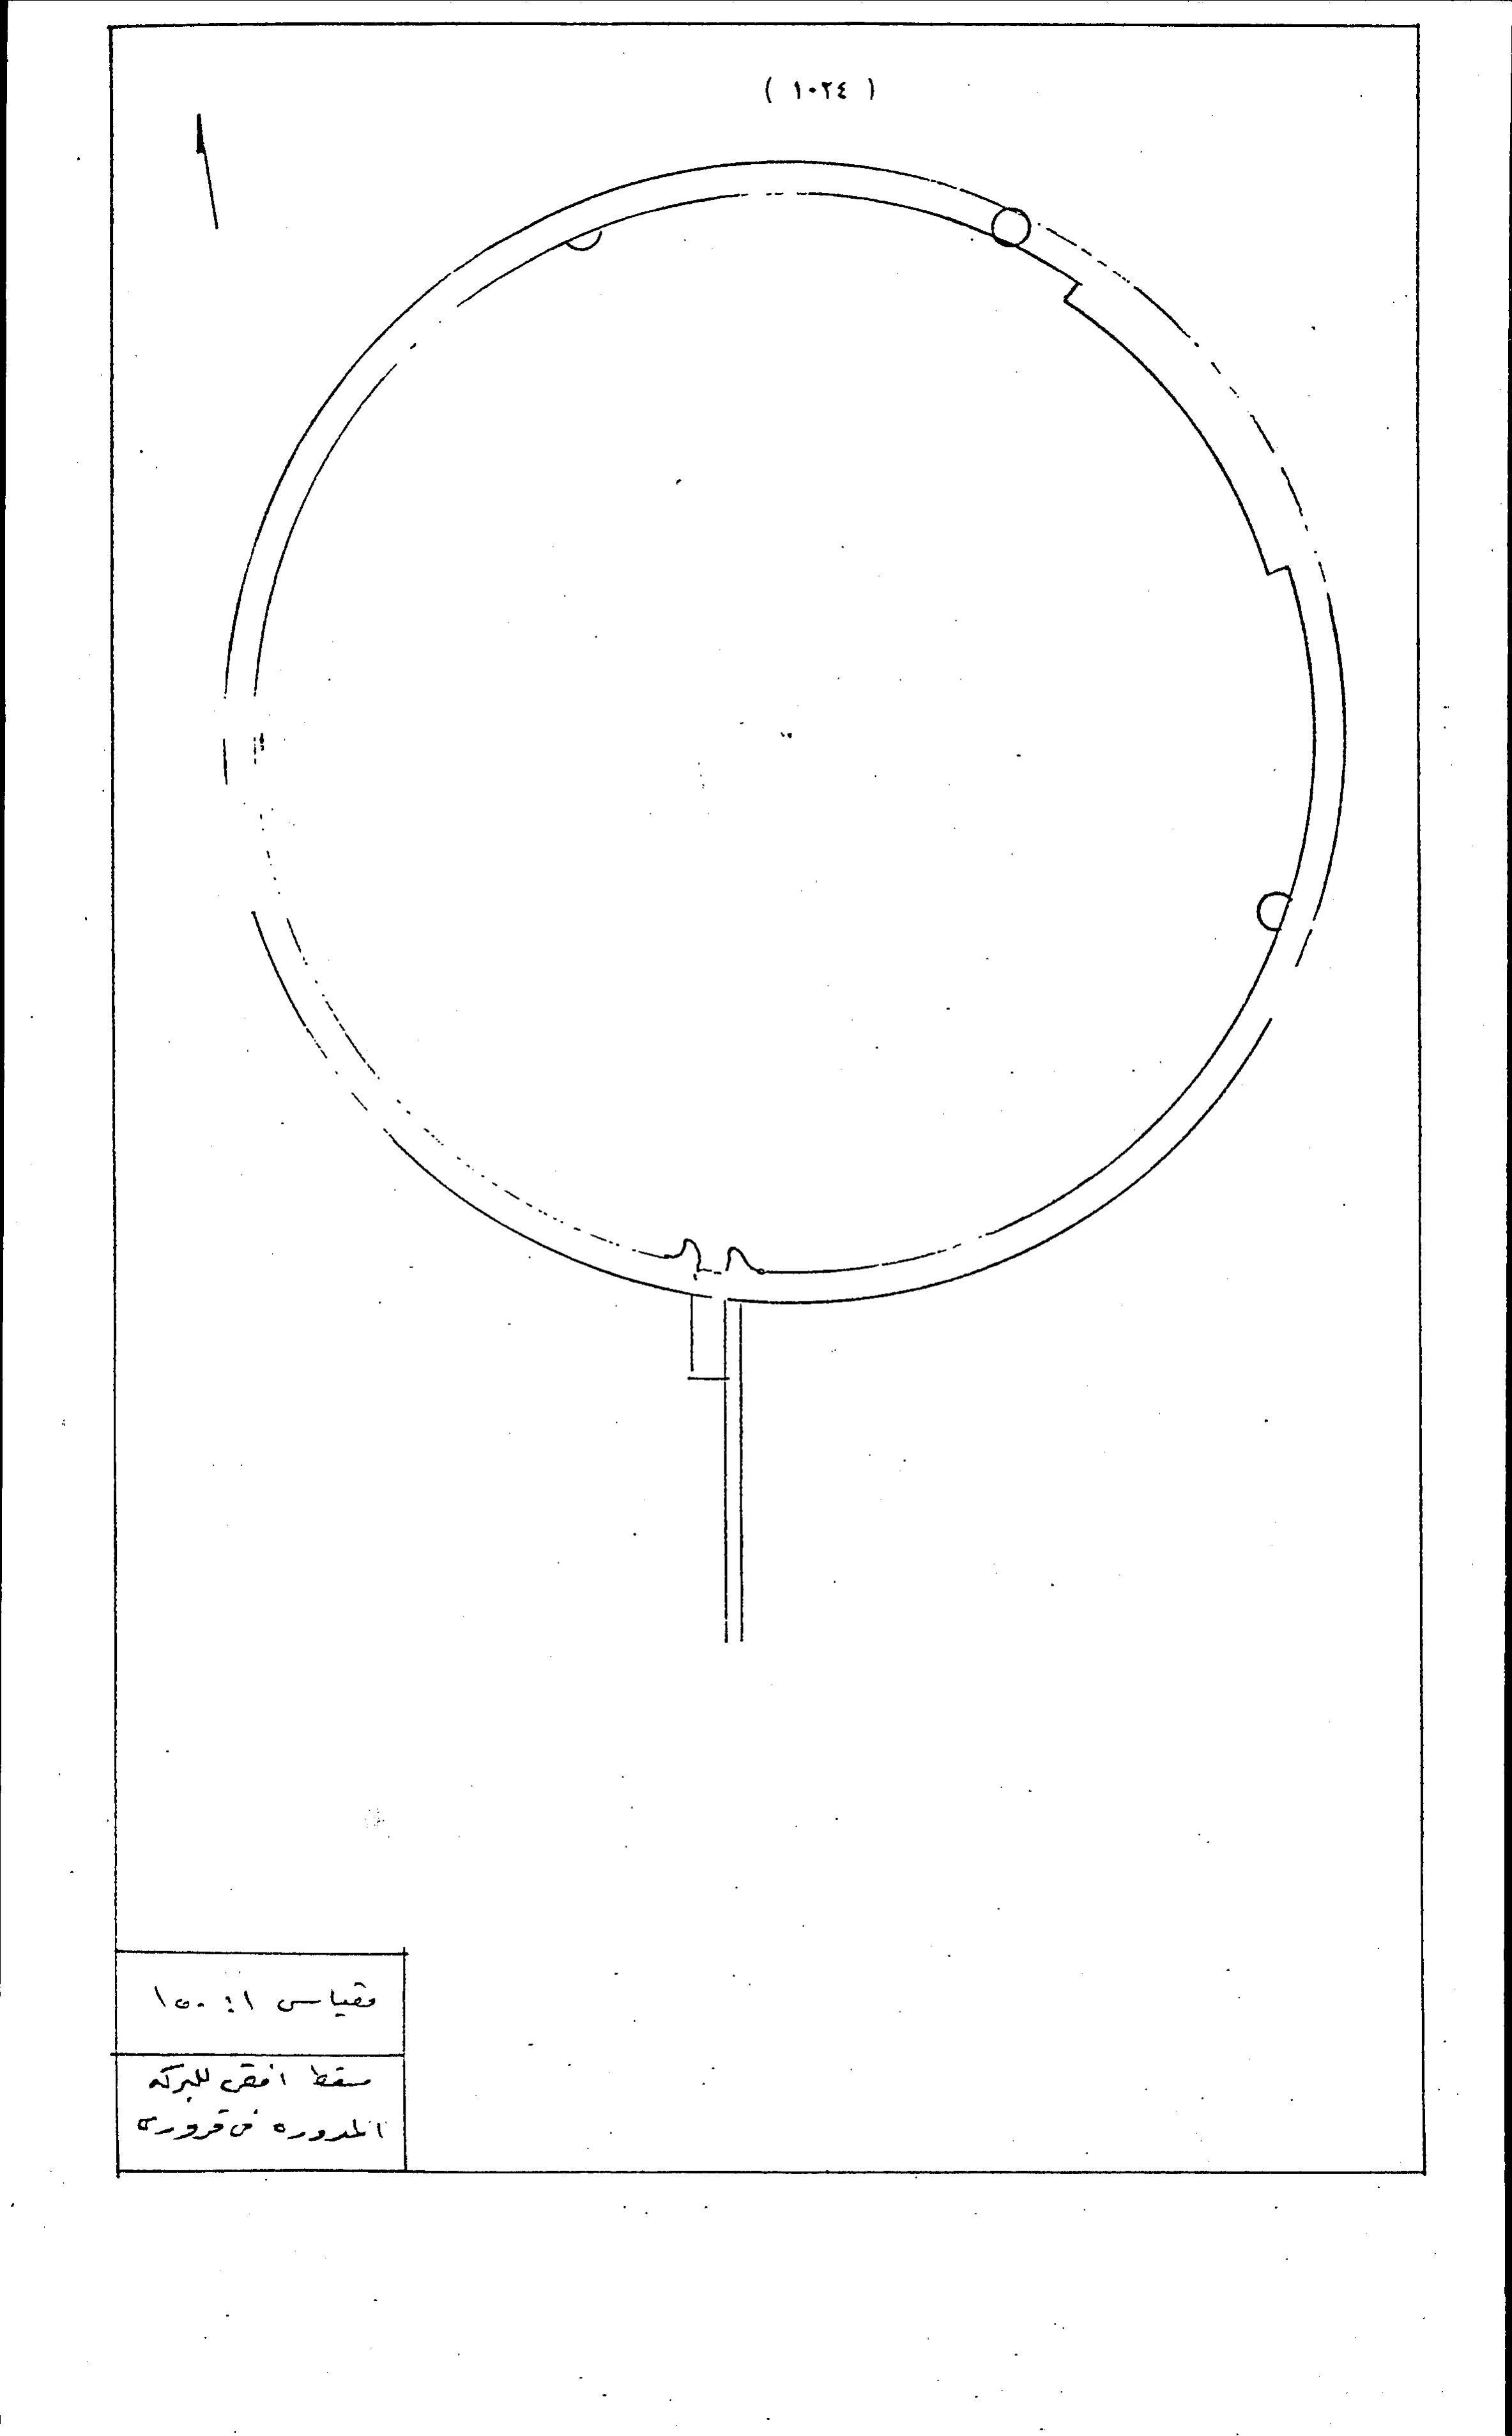 ( ١٠٢٤ )
مقياس ١ : ١٥٠
مسقط افقى للبركه
المدوره فى قرورى